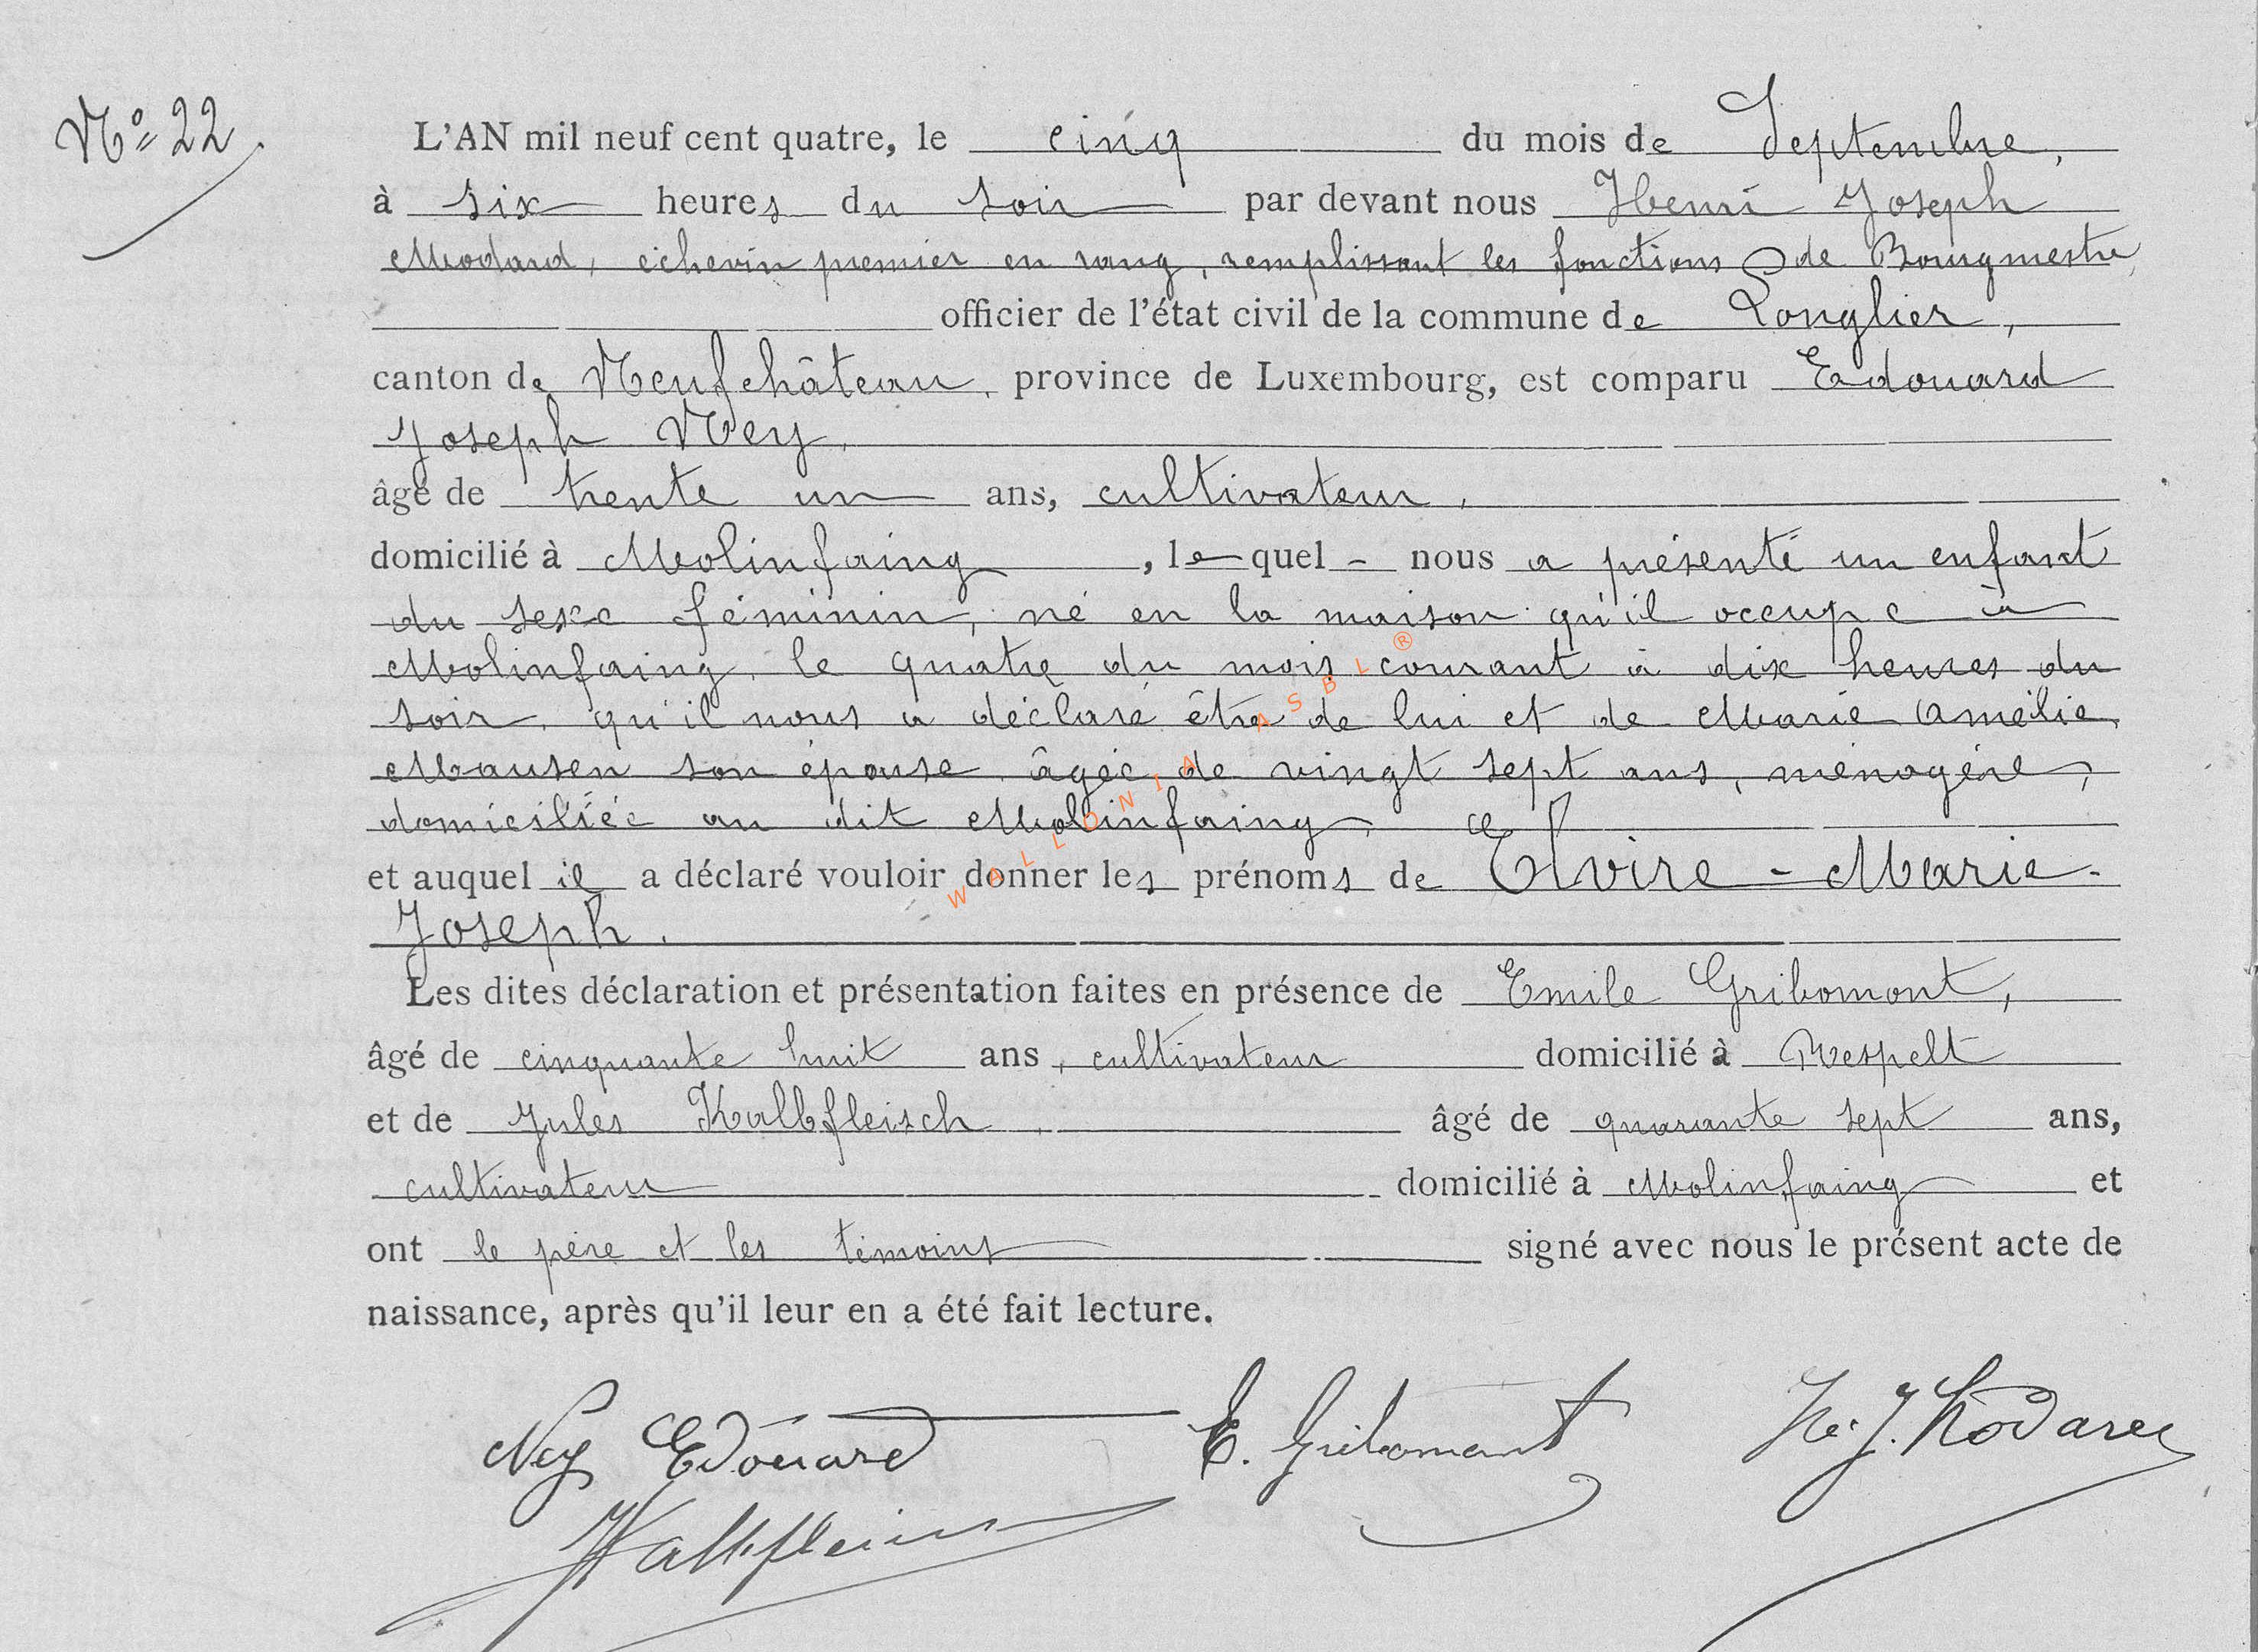 N° 22
L'AN mil neuf cent quatre, le cinq du mois de Septembre,
à six heures du soir par devant nous Henri Joseph
Modard, échevin premier en rang, remplissant les fonctions de Bourgmestre,
officier de l'état civil de la commune de Longlier,
canton de Neufchâteau, province de Luxembourg, est comparu Edouard
Joseph Ney,
âgé de trente un ans, cultivateur,
domicilié à Molinfaing, lequel nous a présenté un enfant
du sexe féminin, né en la maison qu'il occupe à
Molinfaing, le quatre du mois courant à dix heures du
soir, qu'il nous a déclaré être de lui et de Marie Amélie
Mausen son épouse, âgée de vingt sept ans, ménagère,
domiciliée au dit Molinfaing,
et auquel il a déclaré vouloir donner les prénoms de Elvire - Marie -
Joseph.
Les dites déclaration et présentation faites en présence de Emile Gribomont,
âgé de cinquante huit ans, cultivateur domicilié à Respelt
et de Jules Kalbfleisch, âgé de quarante sept ans,
cultivateur domicilié à Molinfaing et
ont le père et les témoins signé avec nous le présent acte de
naissance, après qu'il leur en a été fait lecture.
Ney Edouard E. Gribomont H. J. Modard
Kalbfleisch
WALLONIA ASBL ®